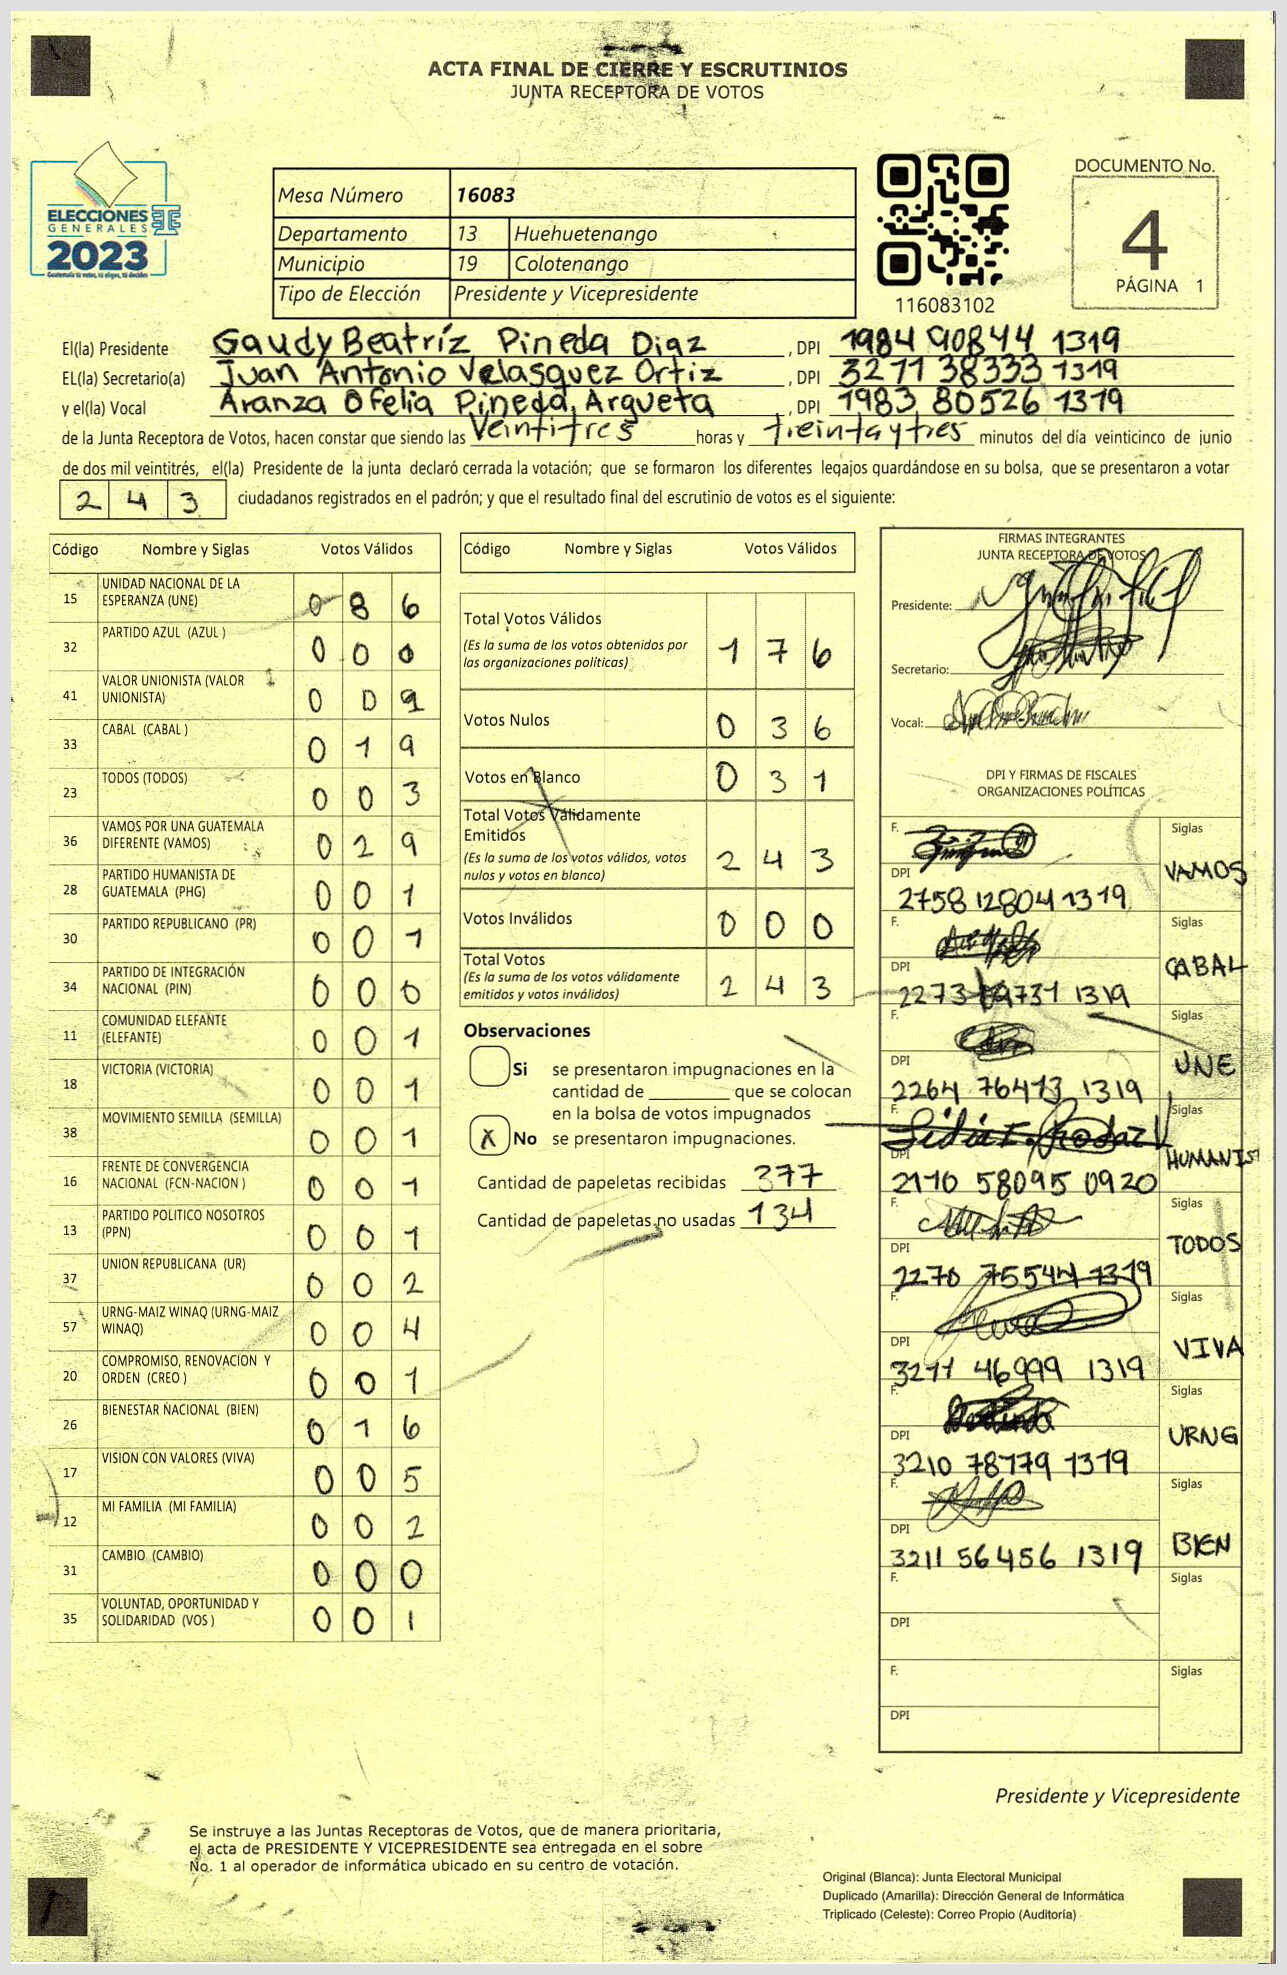 ACTA FINAL DE CIERRE Y ESCRUTINIOS
JUNTA RECEPTORA DE VOTOS
ELECCIONES
GENERALES
2023
Mesa Número 16083
Departamento 13 Huehuetenango
Municipio 19 Colotenango
Tipo de Elección Presidente y Vicepresidente
116083102
DOCUMENTO No.
4
PÁGINA 1
El(la) Presidente Gaudy Beatríz Pineda Diaz, DPI 1984 90844 1319
EL(la) Secretario(a) Juan Antonio Velasquez Ortiz, DPI 3271 38333 1319
y el(la) Vocal Aranza Ofelia Pineda Argueta, DPI 1983 80526 1319
de la Junta Receptora de Votos, hacen constar que siendo las Veintitres horas y treinta y tres minutos del día veinticinco de junio
de dos mil veintitrés, el(la) Presidente de la junta declaró cerrada la votación; que se formaron los diferentes legajos guardándose en su bolsa, que se presentaron a votar
2 4 3 ciudadanos registrados en el padrón; y que el resultado final del escrutinio de votos es el siguiente:
Código Nombre y Siglas Votos Válidos
15 UNIDAD NACIONAL DE LA ESPERANZA (UNE) 0 8 6
32 PARTIDO AZUL (AZUL ) 0 0 0
41 VALOR UNIONISTA (VALOR UNIONISTA) 0 0
33 CABAL (CABAL ) 0 1 9
23 TODOS (TODOS) 0 0 3
36 VAMOS POR UNA GUATEMALA DIFERENTE (VAMOS) 0 2 9
28 PARTIDO HUMANISTA DE GUATEMALA (PHG) 0 0 1
30 PARTIDO REPUBLICANO (PR) 0 0 1
34 PARTIDO DE INTEGRACIÓN NACIONAL (PIN) 0 0 0
11 COMUNIDAD ELEFANTE (ELEFANTE) 0 0 1
18 VICTORIA (VICTORIA) 0 0 1
38 MOVIMIENTO SEMILLA (SEMILLA) 0 0 1
16 FRENTE DE CONVERGENCIA NACIONAL (FCN-NACION ) 0 0 1
13 PARTIDO POLITICO NOSOTROS (PPN) 0 0 1
37 UNION REPUBLICANA (UR) 0 0 2
57 URNG-MAIZ WINAQ (URNG-MAIZ WINAQ) 0 0 4
20 COMPROMISO, RENOVACION Y ORDEN (CREO ) 0 0 1
26 BIENESTAR NACIONAL (BIEN) 0 1 6
17 VISION CON VALORES (VIVA) 0 0 5
12 MI FAMILIA (MI FAMILIA) 0 0 2
31 CAMBIO (CAMBIO) 0 0 0
35 VOLUNTAD, OPORTUNIDAD Y SOLIDARIDAD (VOS ) 0 0 1
Código Nombre y Siglas Votos Válidos
Total Votos Válidos 1 7 6
(Es la suma de los votos obtenidos por
las organizaciones políticas)
Votos Nulos 0 3 6
Votos en Blanco 0 3 1
Total Votos Válidamente
Emitidos 2 4 3
(Es la suma de los votos válidos, votos
nulos y votos en blanco)
Votos Inválidos 0 0 0
Total Votos 2 4 3
(Es la suma de los votos válidamente
emitidos y votos inválidos)
Observaciones
Si se presentaron impugnaciones en la
cantidad de ________ que se colocan
en la bolsa de votos impugnados
X No se presentaron impugnaciones.
Cantidad de papeletas recibidas 377
Cantidad de papeletas no usadas 134
FIRMAS INTEGRANTES
JUNTA RECEPTORA DE VOTOS
Presidente:
Secretario:
Vocal:
DPI Y FIRMAS DE FISCALES
ORGANIZACIONES POLÍTICAS
F. Siglas VAMOS
DPI 2758 12804 1319
F. Siglas CABAL
DPI 2273 1319
F. Siglas UNE
DPI 2264 76473 1319
F. Siglas HUMANIST
DPI 2170 58095 0920
F. Siglas TODOS
DPI 2270 75544 1319
F. Siglas VIVA
DPI 3211 46999 1319
F. Siglas URNG
DPI 3210 78779 1319
F. Siglas BIEN
DPI 3211 56456 1319
F. Siglas
DPI
F. Siglas
DPI
Presidente y Vicepresidente
Se instruye a las Juntas Receptoras de Votos, que de manera prioritaria,
el acta de PRESIDENTE Y VICEPRESIDENTE sea entregada en el sobre
No. 1 al operador de informática ubicado en su centro de votación.
Original (Blanca): Junta Electoral Municipal
Duplicado (Amarilla): Dirección General de Informática
Triplicado (Celeste): Correo Propio (Auditoría)